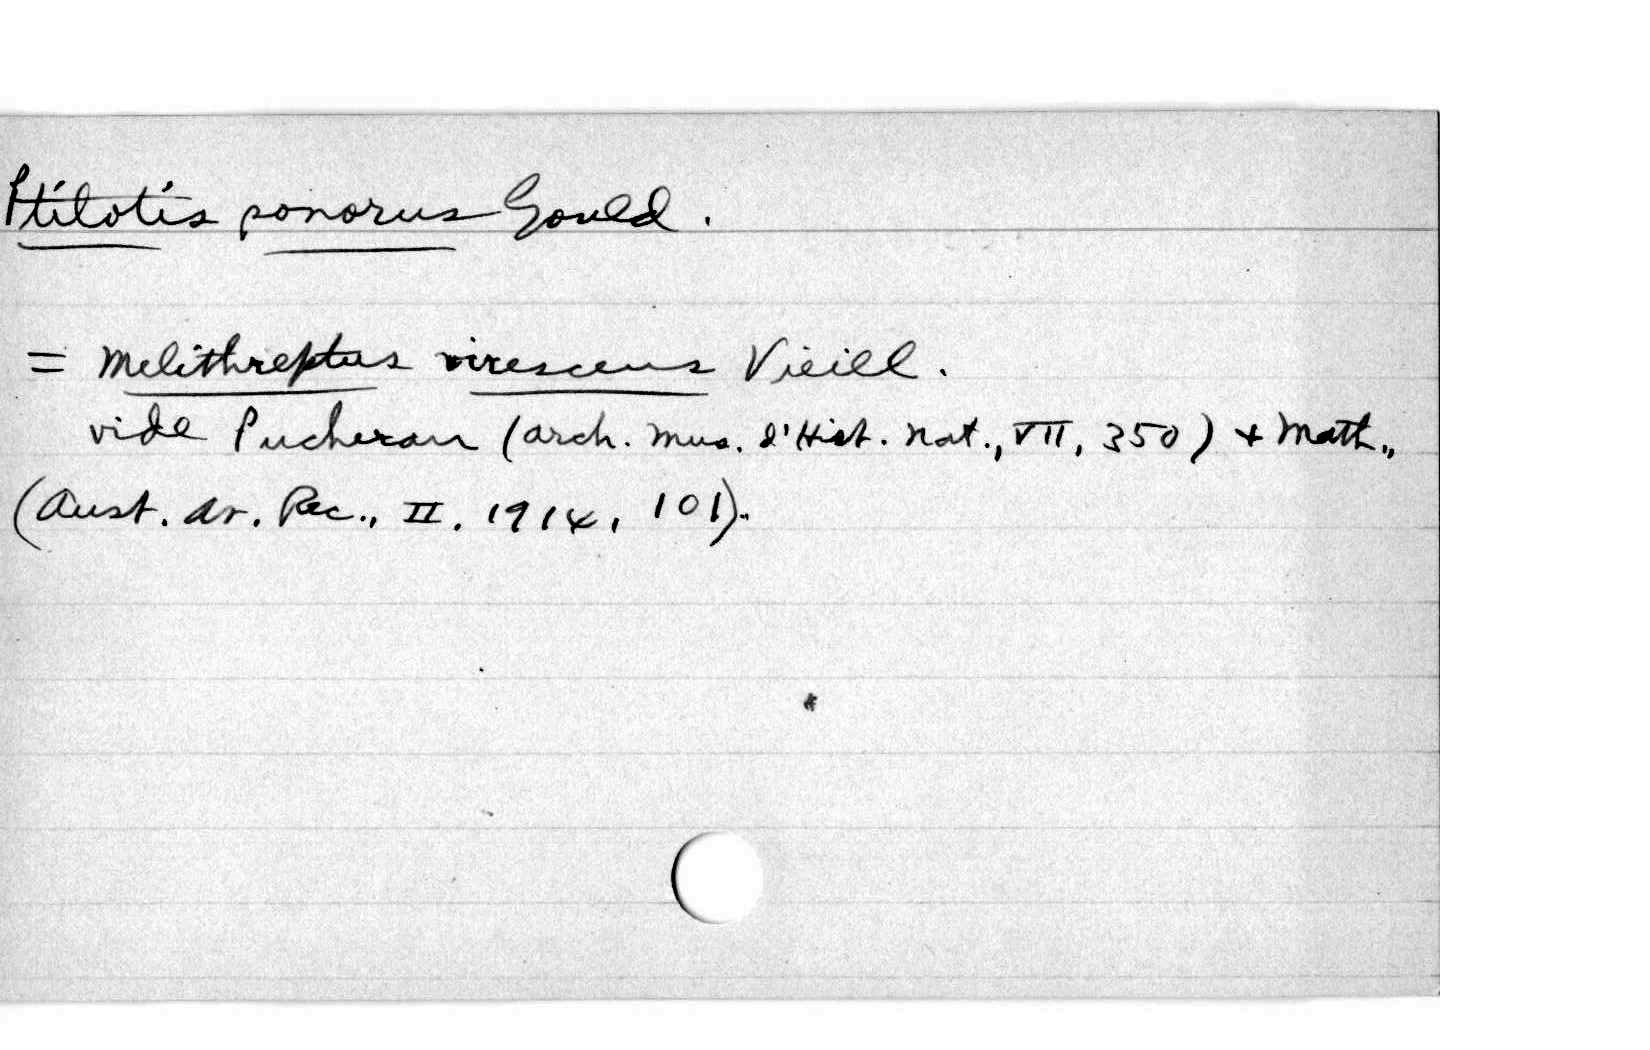 Ptilotis sonorus Gould.
= Melithreptus virescens Vieill.
vide Pucheran (Arch. Mus. d'Hist. Nat., VII, 350) + Math.,
(Aust. Av. Rec., II. 1914, 101).